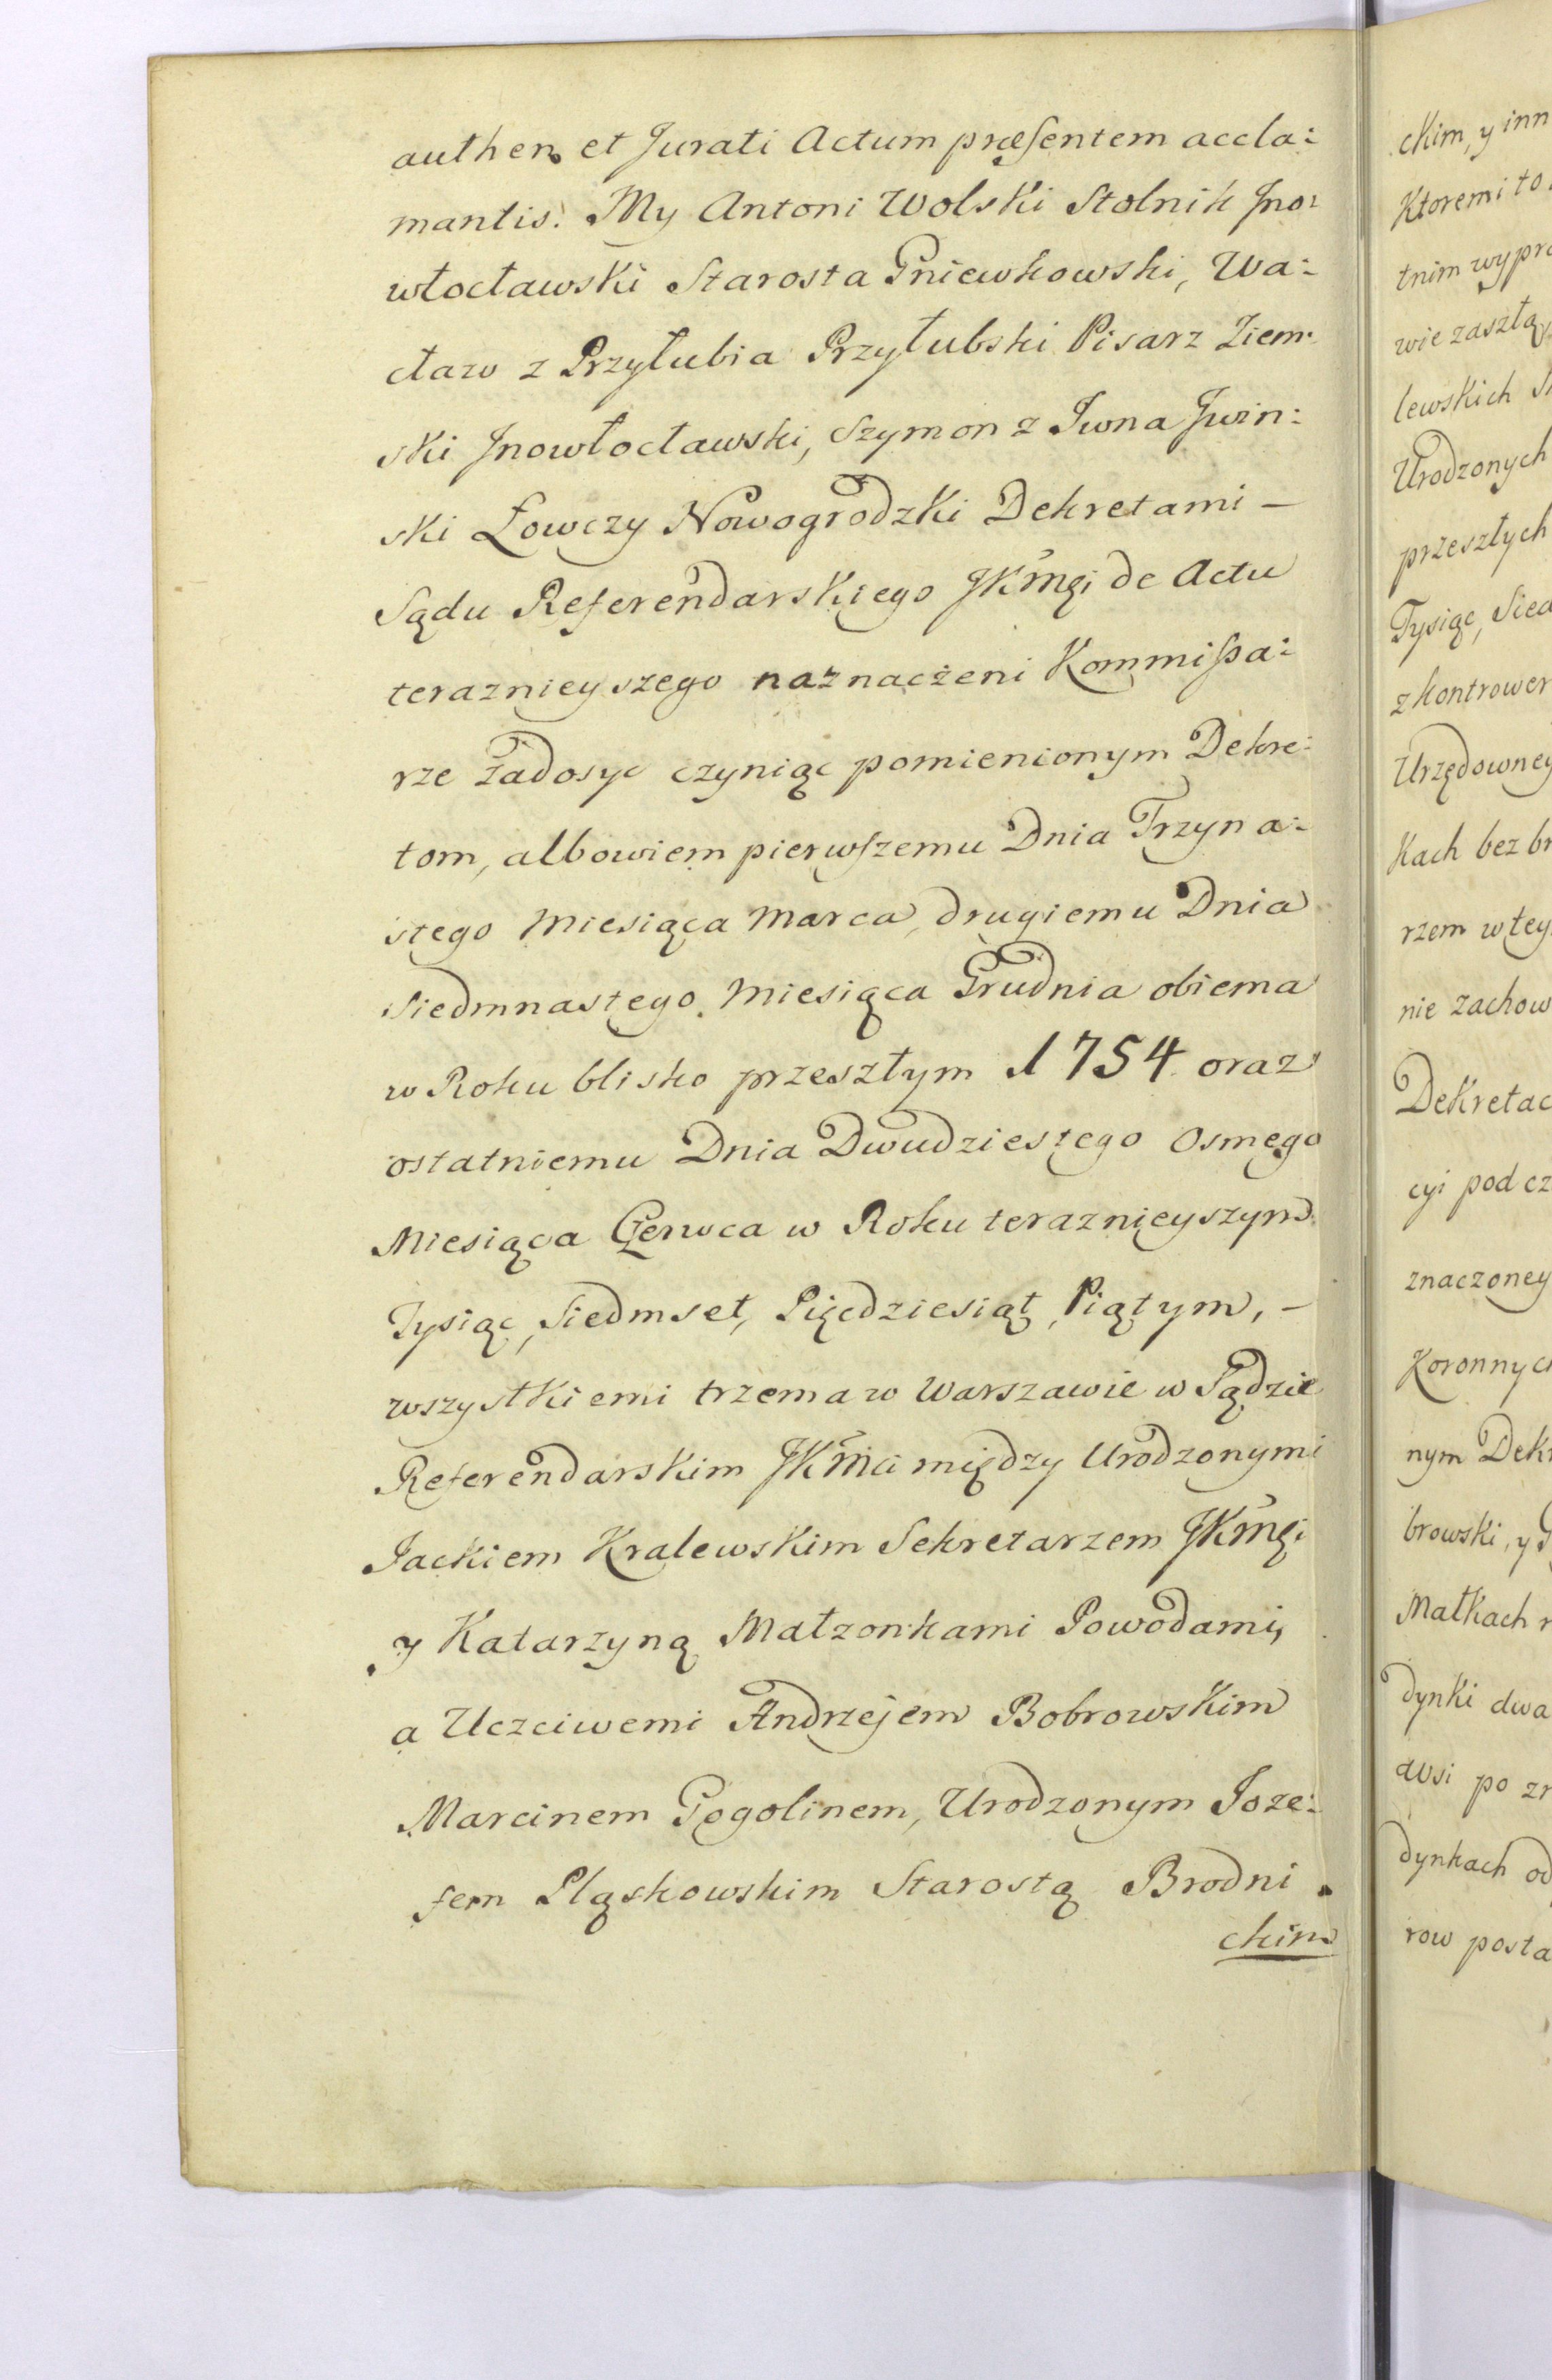 authen et Jurati Actum præsentem accla:
mantis. My Antoni Wolski Stolnik Jno:
włocławski Starosta Gniewkowski, Wa:
cław z Przyłubia Przyłubski Pisarz Ziem:
ski Jnowłocławski, Szymon z Iwna Jwin:
ski Łowczy Nowogrodzki Dekretami —
Sądu Referendarskiego JKmci de Actu
teraznieyszego naznaczeni Kommissa:
rze zadosyc czyniąc pomienionym Dekre:
tom, albowiem pierwszemu Dnia Trzyna:
stego Miesiąca Marca, drugiemu Dnia
Siedmnastego Miesiąca Grudnia obiema
w Roku blisko przeszłym 1754 oraz
ostatniemu Dnia Dwudziestego Osmego
Miesiąca Czerwca w Roku teraznieyszym
Tysiąc, Siedmset, Pięcdziesiąt, Piątym, —
wszystkiemi trzema w Warszawie w Sądzie
Referendarskim JKmci między Urodzonymi
Jackiem Kralewskim Sekretarzem JKmci
y Katarzyną Małzonkami Powodami,
a Uczciwemi Andrzejem Bobrowskim
Marcinem Gogolinem, Urodzonym Joze:
fem Pląskowskim Starostą Brodni
ckim
ckim, y inn
Ktoremi to
tnim wypro
wie zaszłą
lewskich
Urodzonych
przeszłych
Tysiąc, Sied
z kontrower
Urzędowney
kach bez br
rzem w tey
nie zachow
Dekretac
cyi pod cz
znaczoney
Koronnych
nym Dekr
browski, y
Matkach
dynki dwa
dwsi po zr
dynkach od
row posta